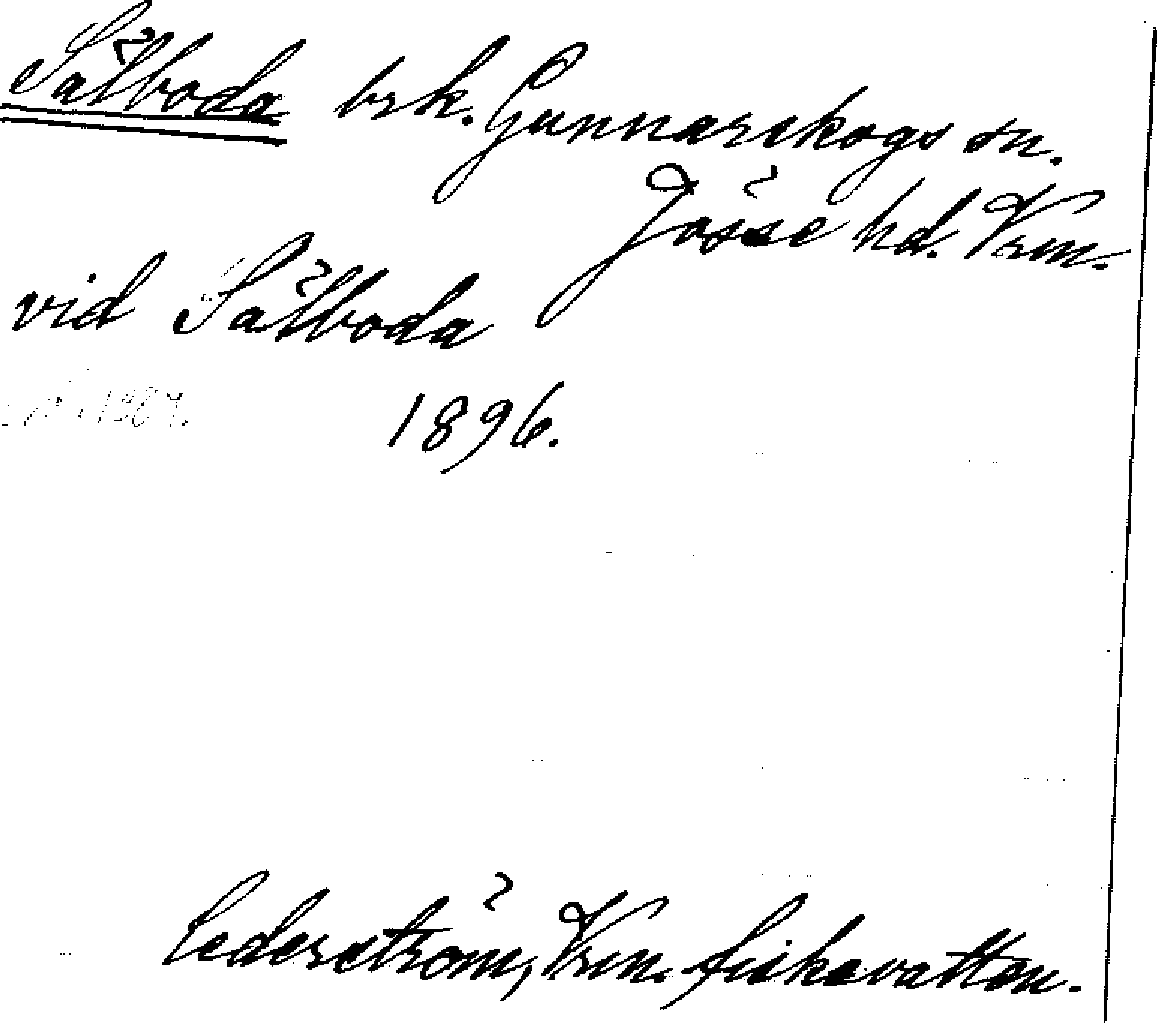 Sälboda brk. Gunnarskogs sn.
Jösse hd. Vrm.
vid Sälboda
1896.
Cederström, Vrm. fiskevatten.